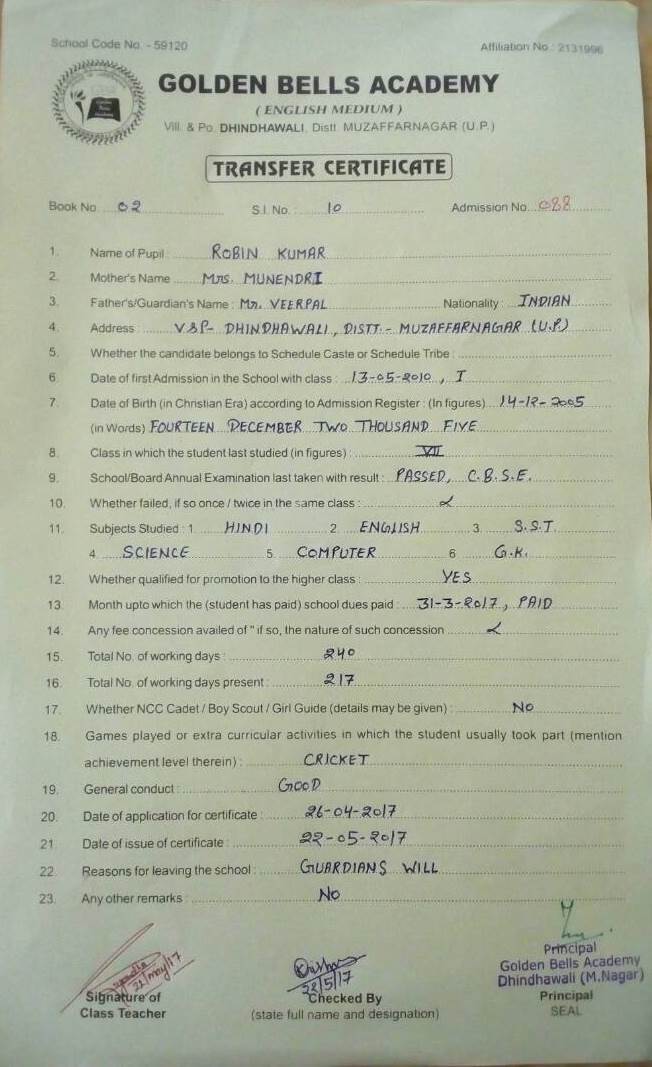 School Code No. - 59120
Affiliation No : 2131996
GOLDEN BELLS ACADEMY
( ENGLISH MEDIUM )
Vill. & Po. DHINDHAWALI, Distt. MUZAFFARNAGAR (U.P.)
TRANSFER CERTIFICATE
Book No. 02 S.I. No. 10 Admission No. 088
1. Name of Pupil : ROBIN KUMAR
2. Mother's Name MRS. MUNENDRI
3. Father's/Guardian's Name : Mr. VEERPAL Nationality : INDIAN
4. Address : V&P- DHINDHAWALI, DISTT.- MUZAFFARNAGAR (U.P.)
5. Whether the candidate belongs to Schedule Caste or Schedule Tribe :
6. Date of first Admission in the School with class : 13-05-2010, I
7. Date of Birth (in Christian Era) according to Admission Register : (In figures) 14-12-2005
(in Words) FOURTEEN DECEMBER TWO THOUSAND FIVE
8. Class in which the student last studied (in figures) : VII
9. School/Board Annual Examination last taken with result : PASSED, C.B.S.E.
10. Whether failed, if so once / twice in the same class :
11. Subjects Studied : 1. HINDI 2. ENGLISH 3. S.S.T.
4. SCIENCE 5. COMPUTER 6. G.K.
12. Whether qualified for promotion to the higher class : YES
13. Month upto which the (student has paid) school dues paid : 31-3-2017, PAID
14. Any fee concession availed of " if so, the nature of such concession
15. Total No. of working days : 240
16. Total No. of working days present : 217
17. Whether NCC Cadet / Boy Scout / Girl Guide (details may be given) : NO
18. Games played or extra curricular activities in which the student usually took part (mention
achievement level therein) : CRICKET
19. General conduct : GOOD
20. Date of application for certificate : 26-04-2017
21. Date of issue of certificate : 22-05-2017
22. Reasons for leaving the school : GUARDIANS WILL
23. Any other remarks : NO
22/may/17
22/5/17
Principal
Golden Bells Academy
Dhindhawali (M.Nagar)
Signature of Checked By Principal
Class Teacher (state full name and designation) SEAL